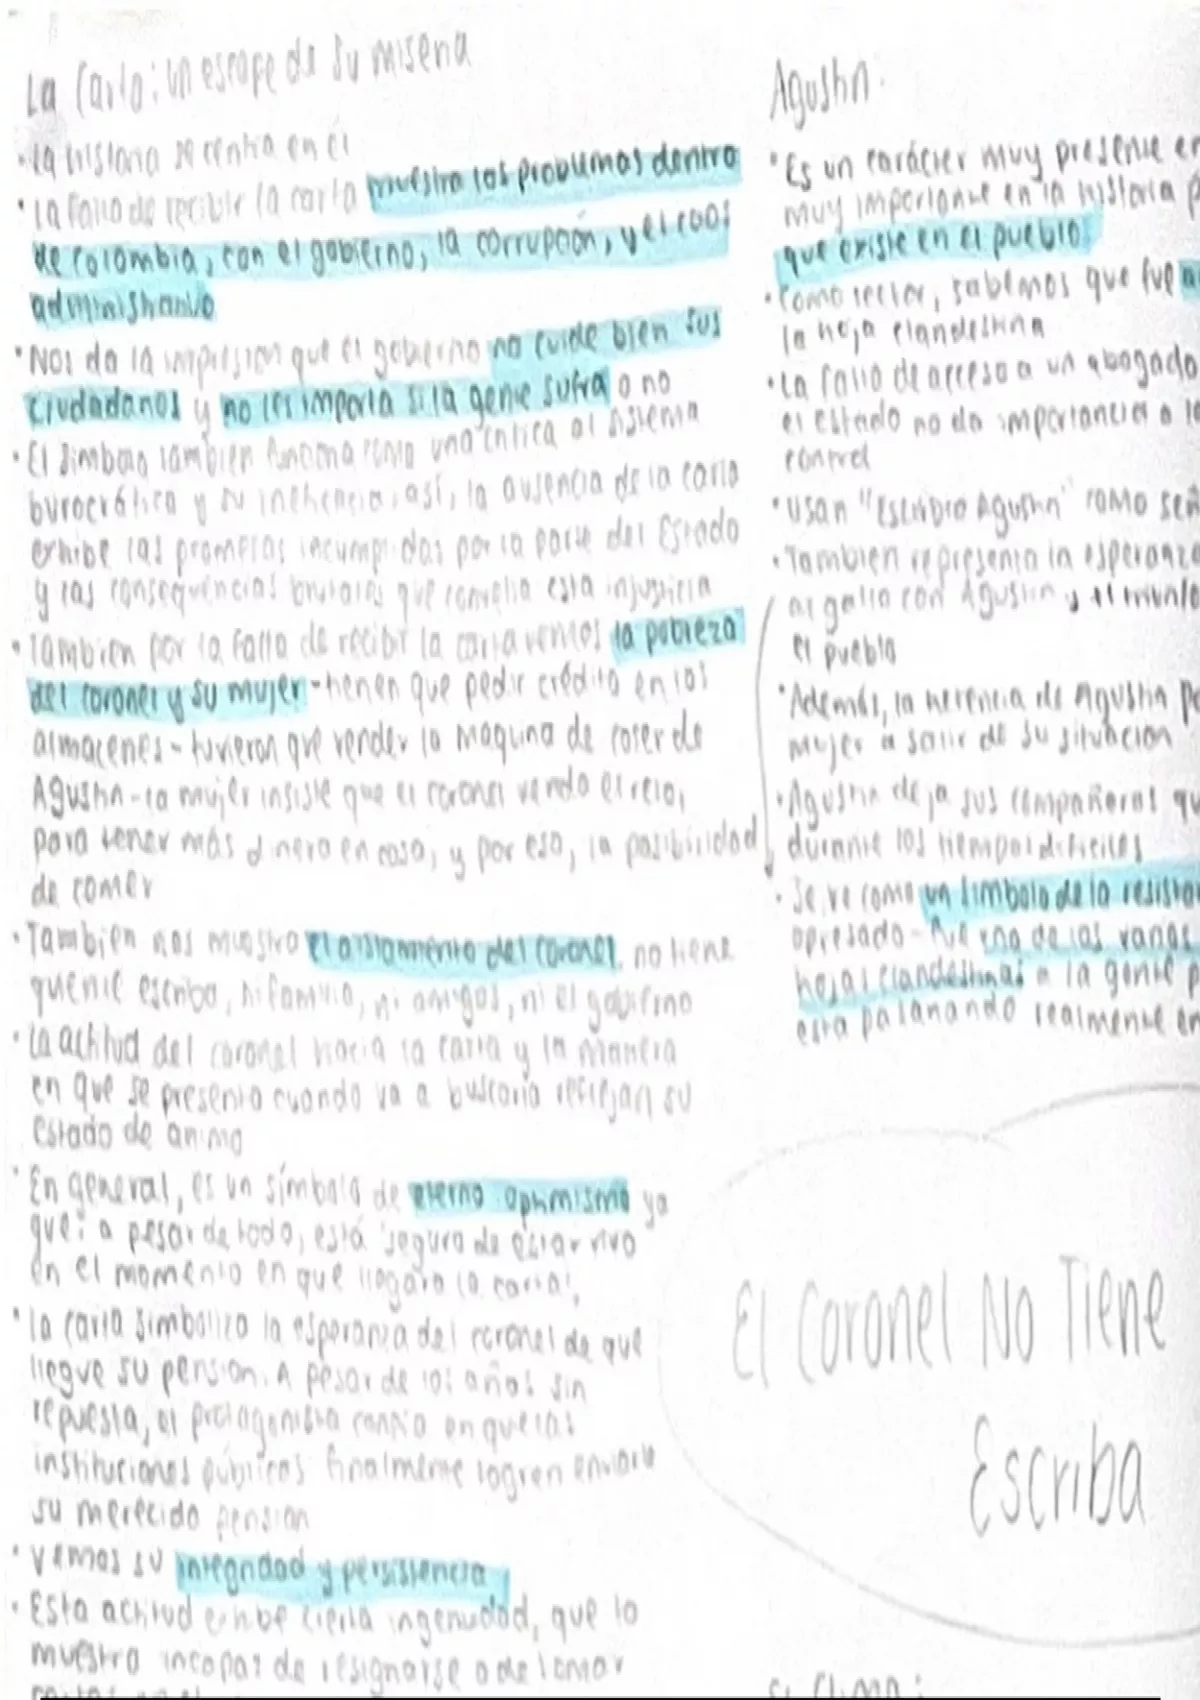 La Carta: un escape de su miseria
• La historia se centra en el
• La falta de recibir la carta muestra los problemas dentro
de Colombia, con el gobierno, la corrupción, y el caos
administrativo
• Nos da la impresion que el gobierno no cuide bien sus
ciudadanos y no les importa si la gente sufra o no
• El simbolo tambien funciona como una critica al sistema
burocrática y su inefficencia, así, la ausencia de la carta
exhibe las promesas incumplidas por la parte del Estado
y las consequencias brutales que conlleva esta injusticia
• Tambien por la falta de recibir la carta vemos la pobreza
del coronel y su mujer - tienen que pedir crédito en los
almacenes - tuvieron que vender la maquina de coser de
Agustin - la mujer insiste que el coronel venda el reloj
para tener más dinero en casa, y por eso, la posibilidad
de comer
• Tambien nos muestra el aislamiento del coronel, no tiene
quien le escriba, ni familia, ni amigos, ni el gobierno
• La actitud del coronel hacia la carta y la manera
en que se presenta cuando va a buscarla reflejan su
estado de animo
• En general, es un símbolo de eterno optimismo ya
que, a pesar de todo, está 'seguro de estar vivo
en el momento en que llegara la carta',
• La carta simboliza la esperanza del coronel de que
llegue su pension. A pesar de los años sin
repuesta, el protagonista confia en que las
instituciones públicas finalmente logren enviarle
su merecido pension
• Vemos su integridad y persistencia
• Esta actitud exhibe cierta ingenuidad, que lo
muestra incapaz de resignarse o de tomar
Agustin:
• Es un carácter muy presente en
muy importante en la historia
que existe en el pueblo
• Como lector, sabemos que fue
la hoja clandestina
• La falta de acceso a un abogado
el estado no da importancia a
control
• Usan "Escribio Agustin" como
• Tambien representa la esperanza
al gallo con Agustin y el triunfo
el pueblo
• Además, la herencia de Agustin
mujer a salir de su situacion
• Agustin deja sus compañeros
durante los tiempos dificiles
• Se ve como un simbolo de la
opresado - fue una de las varias
hojas clandestinas a la gente
esta pasando realmente en
El Coronel No Tiene
Escriba